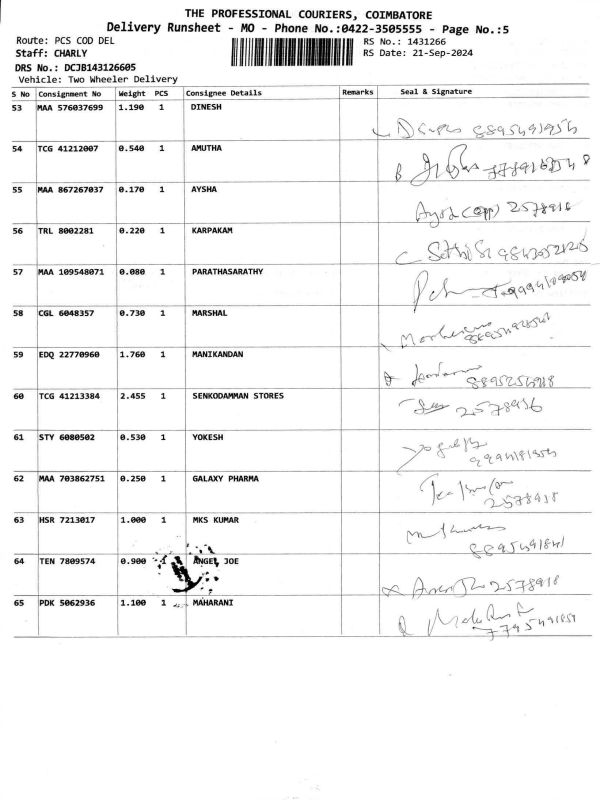 THE PROFESSIONAL COURIERS, COIMBATORE
Delivery Runsheet - MO - Phone No.:0422-3505555 - Page No.:5
Route: PCS COD DEL RS No.: 1431266
Staff: CHARLY RS Date: 21-Sep-2024
DRS No.: DCJB143126605
Vehicle: Two Wheeler Delivery
S No Consignment No Weight PCS Consignee Details Remarks Seal & Signature
53 MAA 576037699 1.190 1 DINESH
54 TCG 41212007 0.540 1 AMUTHA
55 MAA 867267037 0.170 1 AYSHA
2578918
56 TRL 8002281 0.220 1 KARPAKAM
57 MAA 109548071 0.080 1 PARATHASARATHY
58 CGL 6048357 0.730 1 MARSHAL
59 EDQ 22770960 1.760 1 MANIKANDAN
60 TCG 41213384 2.455 1 SENKODAMMAN STORES
61 STY 6080502 0.530 1 YOKESH
62 MAA 703862751 0.250 1 GALAXY PHARMA
2578918
63 HSR 7213017 1.000 1 MKS KUMAR
64 TEN 7809574 0.900 1 ANGEL JOE
2578918
65 PDK 5062936 1.100 1 MAHARANI